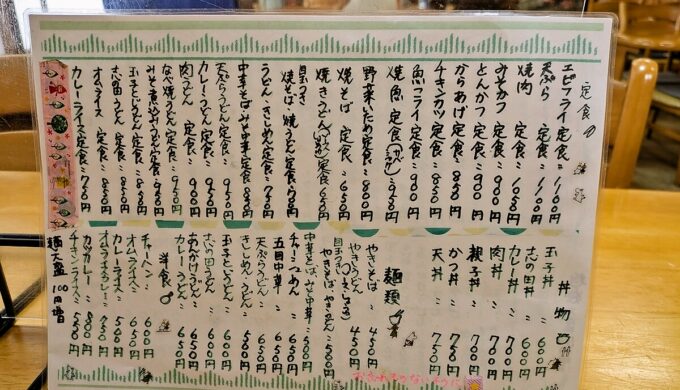 定食
エビフライ定食〃1100円
天ぷら 定食〃1100円
焼肉 定食〃1050円
みそかつ 定食〃900円
とんかつ 定食〃900円
からあげ定食〃850円
チキンカツ定食〃900円
魚フライ 定食〃900円
焼魚 定食
950円
野菜いため定食〃800円
焼そば 定食〃650円
焼きうどん
定食
650円
目玉つき
焼そば・焼うどん定食700円
うどん・きしめん定食〃750円
中華そば・みそ中華定食850円
天ぷらうどん定食〃950円
カレーうどん 定食〃900円
肉うどん 定食〃950円
なべ焼うどん定食〃950円
みそ煮込みうどん定食950円
玉子とじうどん定食〃850円
志の田 定食〃850円
オムライス 定食〃850円
カレーライス定食〃750円
丼物
玉子丼〃600円
志の田丼〃600円
カレー丼〃700円
肉丼〃700円
親子丼〃700円
かつ丼〃750円
天丼〃750円
麺類
やきそば〃450円
やきうどん〃450円
目玉つき
やきそば・やきうどん〃500円
中華そば・みそ中華〃550円
チャーシューめん〃650円
五目中華〃650円
天ぷらうどん〃650円
きしめん・うどん〃450円
玉子とじうどん〃550円
志の田うどん〃550円
あんかけうどん〃550円
カレーうどん〃600円
洋食
チャーハン〃600円
オムライス〃600円
カレーライス〃500円
カツカレー〃800円
チキンライス〃550円
麺大盛 100円増